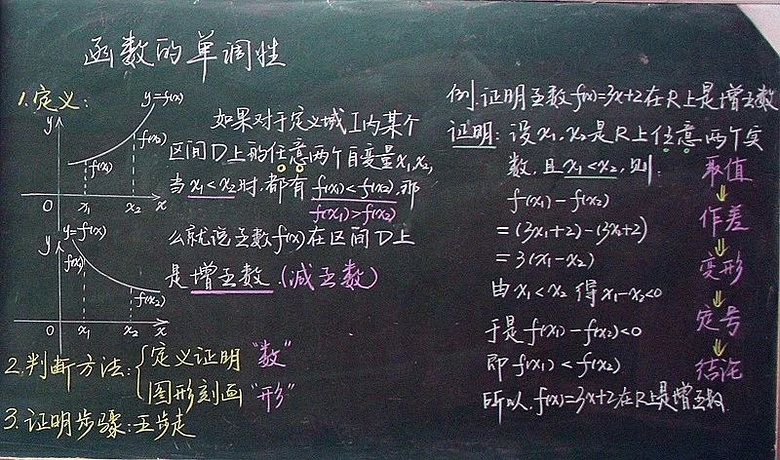 函数的单调性
1.定义:
y
y=f(x)
f(x₁)
f(x₂)
O x₁ x₂ x
y
y=f(x)
f(x₁)
f(x₂)
O x₁ x₂ x
如果对于定义域I内某个
区间D上的任意两个自变量x₁,x₂,
当x₁<x₂时,都有f(x₁)<f(x₂),那
f(x₁)>f(x₂)
么就说函数f(x)在区间D上
是增函数.(减函数)
2.判断方法:{定义证明"数"
图形刻画"形"
3.证明步骤:五步走
例.证明函数f(x)=3x+2在R上是增函数
证明:设x₁,x₂是R上任意两个实
数,且x₁<x₂,则:
f(x₁)-f(x₂)
=(3x₁+2)-(3x₂+2)
=3(x₁-x₂)
由x₁<x₂得x₁-x₂<0
于是f(x₁)-f(x₂)<0
即f(x₁)<f(x₂)
所以.f(x)=3x+2在R上是增函数.
取值
⇓
作差
⇓
变形
⇓
定号
⇓
结论